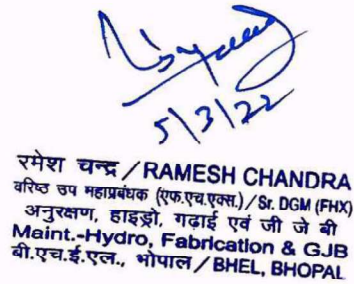 5/3/22
रमेश चन्द्र / RAMESH CHANDRA
वरिष्ठ उप महाप्रबंधक (एफ.एच.एक्स.) / Sr. DGM (FHX)
अनुरक्षण, हाइड्रो, गढ़ाई एवं जी जे बी
Maint.-Hydro, Fabrication & GJB
बी.एच.ई.एल., भोपाल / BHEL, BHOPAL